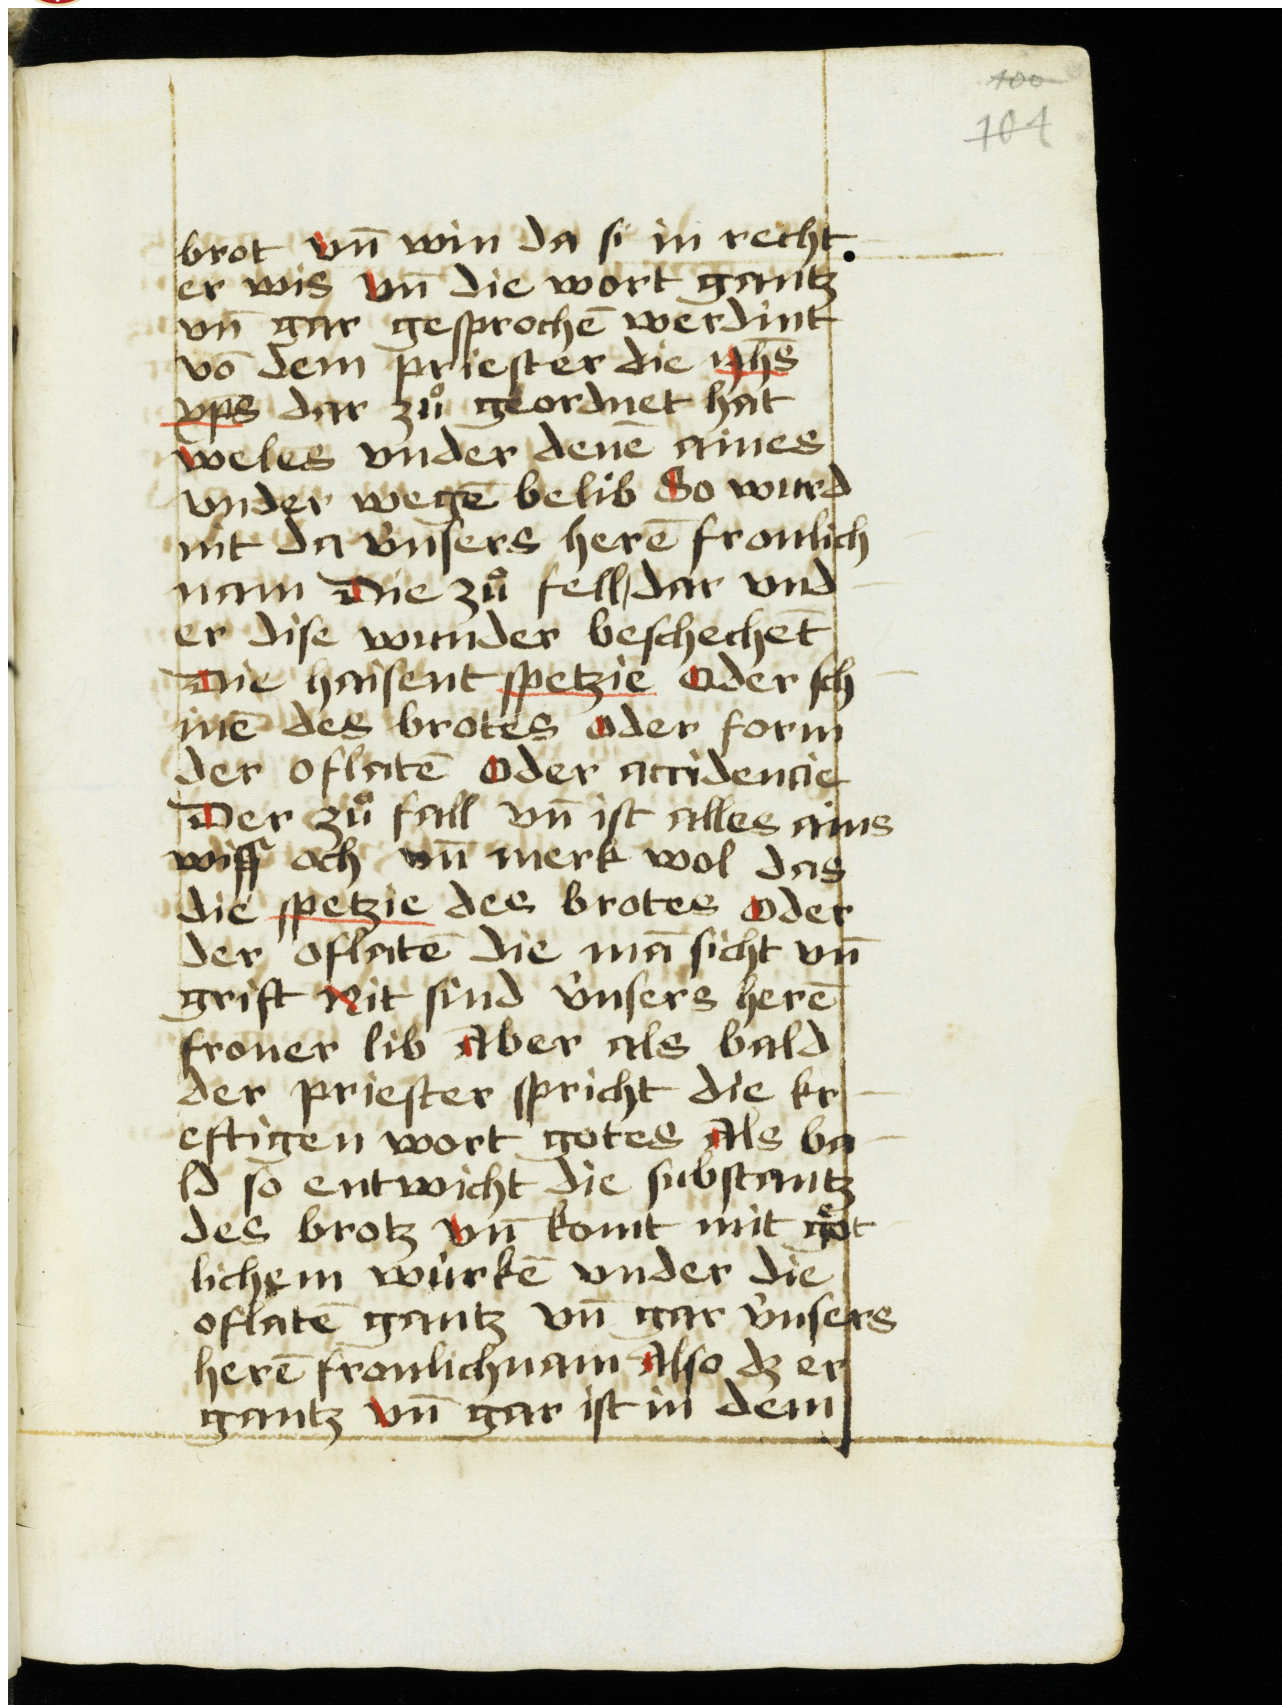 100
104
brot vn̄ win da si in recht
er wis vn̄ die wort gantz
vn̄ gar gesprochē werdint
vō dem priester die ihs̄
xps dar zuͦ geordnet hat
weles vnder denē aines
vnder wegē belib So wurd
nit da v̇nsers herē fronlich
nam Die zuͦ fell dar vnd
er dise wunder beschechet̄
Die haisent spetzie Oder sch
inē des brotes oder form
der oflatē Oder accidencie
Der zuͦ fall vn̄ ist alles ains
wiss och vn̄ merk wol das
die spetzie des brotes oder
der oflatē die mā sicht vn̄
grift Nit sind v̇nsers herē
froner lib Aber als bald
der priester spricht die kr
eftigen wort gotes Als ba
ld so entwicht die substantz
des brotz vn̄ komt mit goͤt
lichem wu̇rkē vnder die
oflatē gantz vn̄ gar v̇nsers
herē fronlichnam Also dz er
gantz vn̄ gar ist in dem